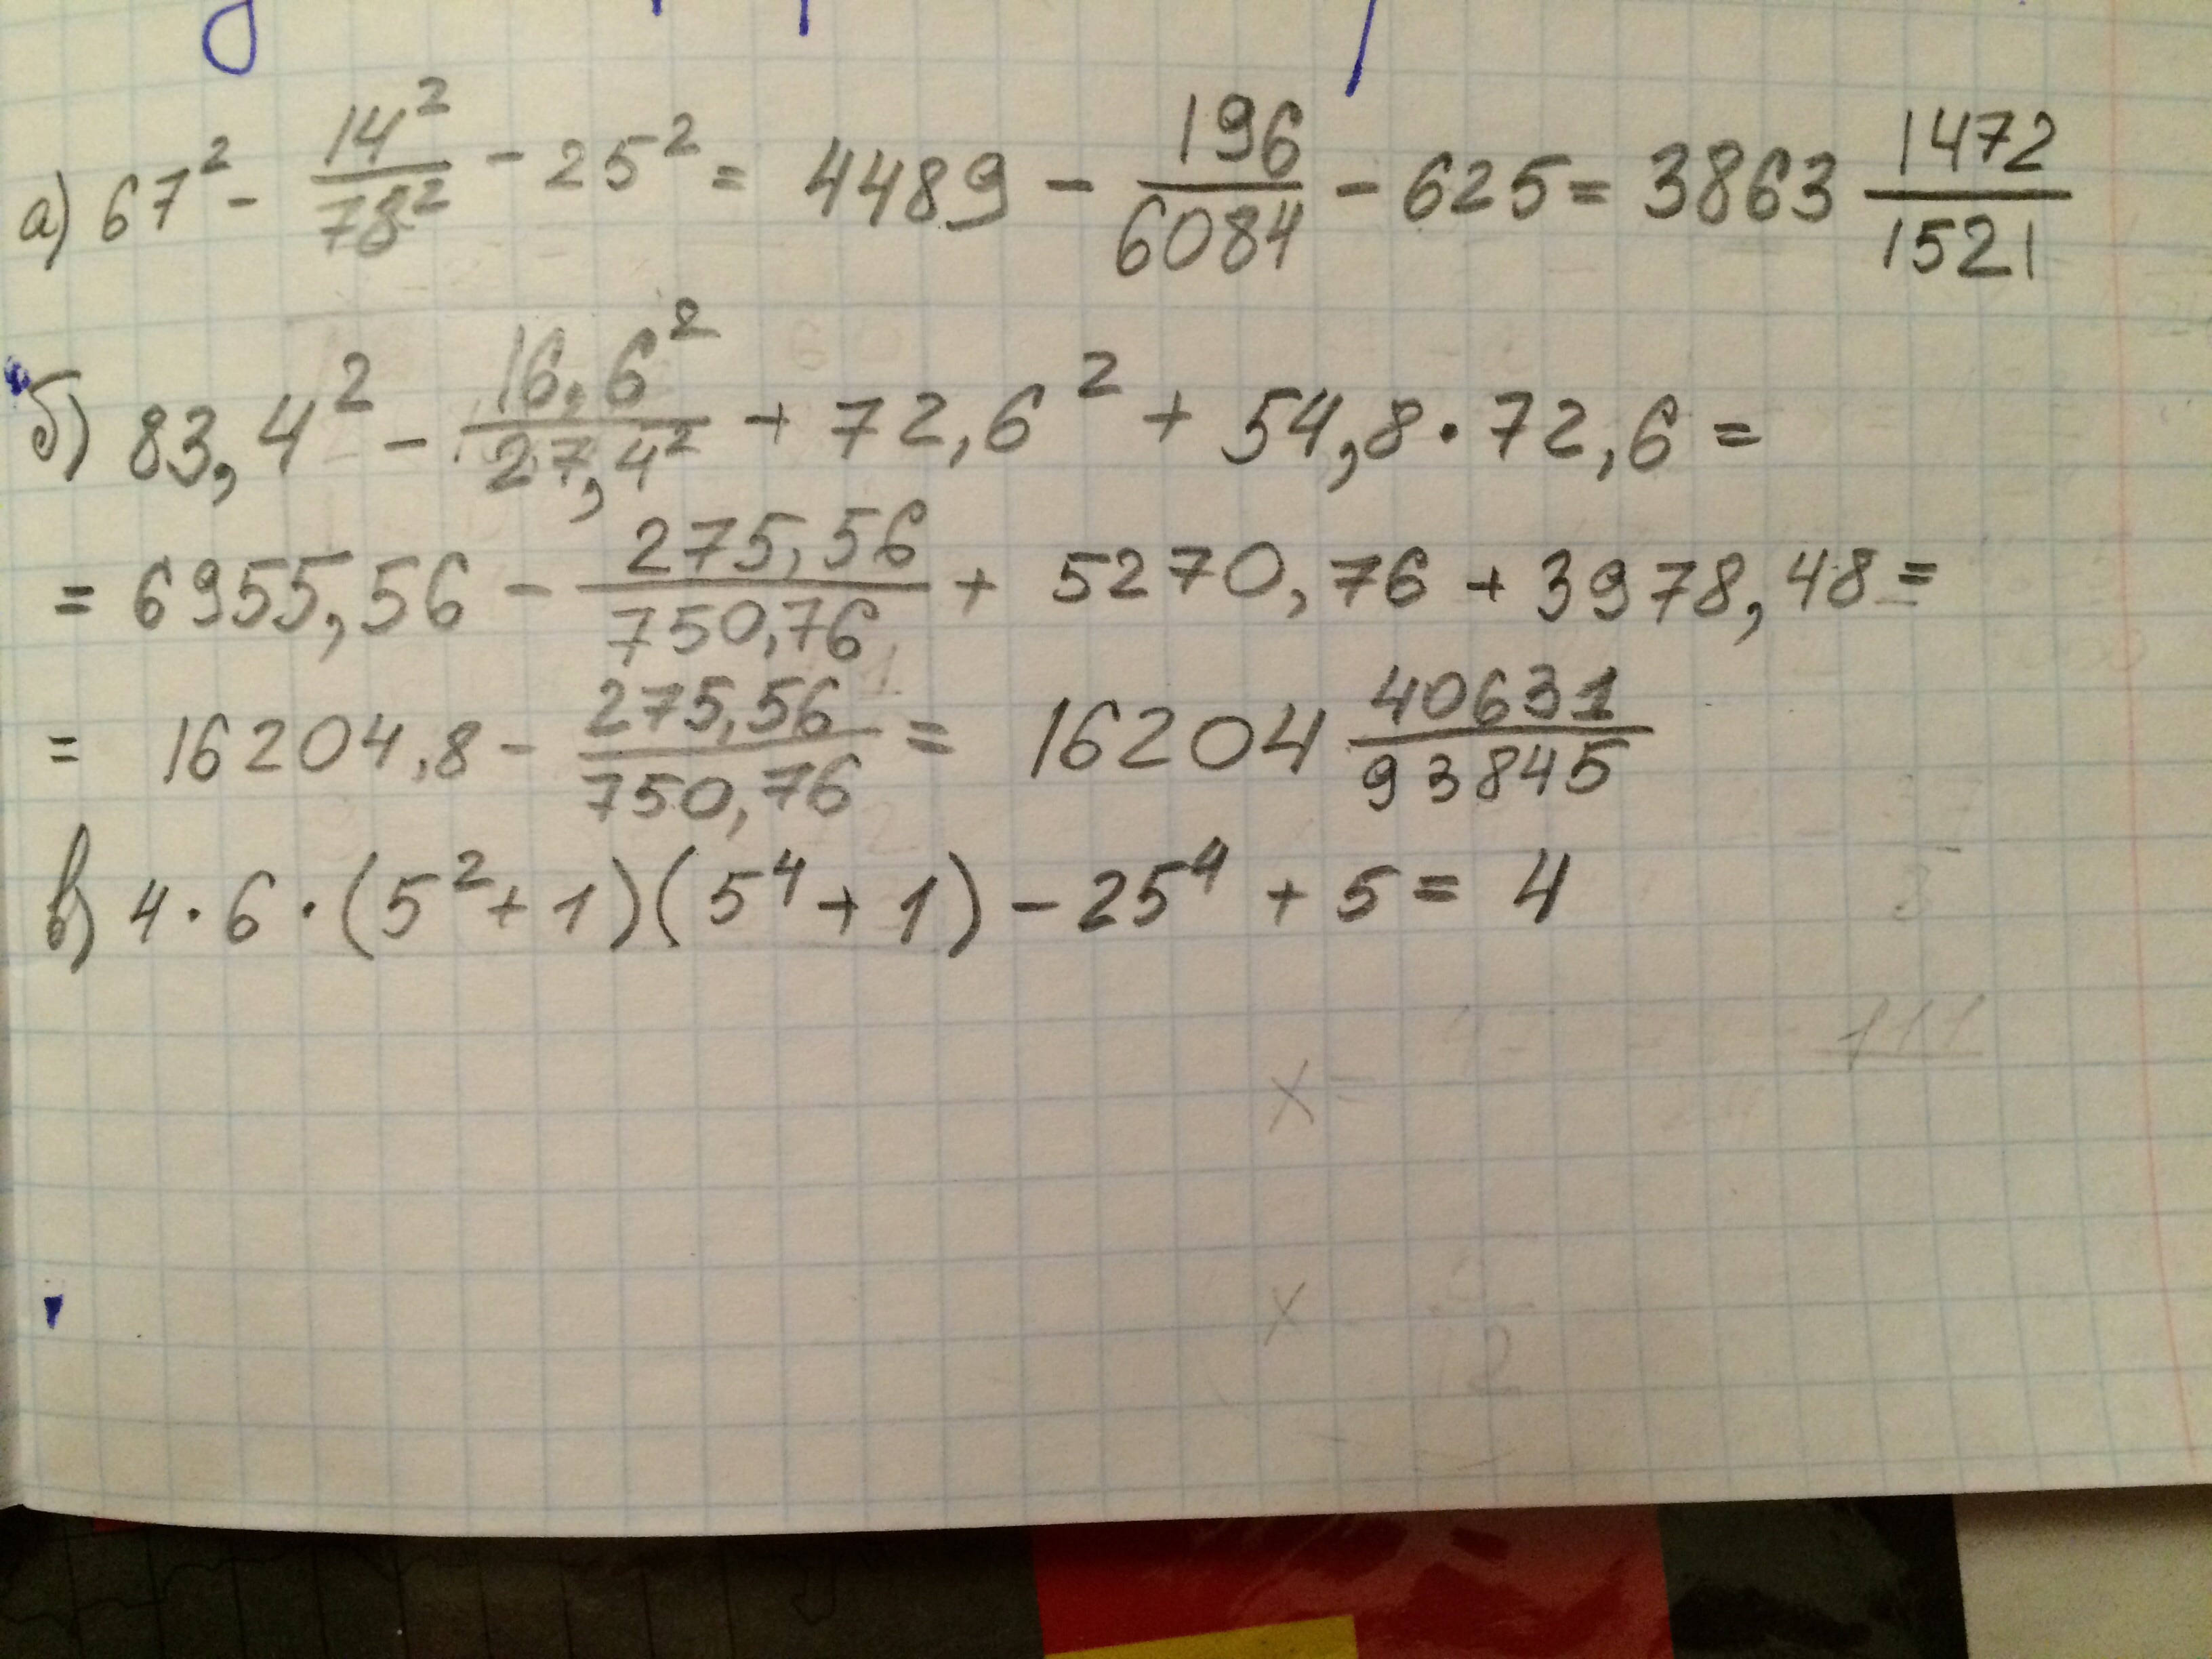 а) 67² - 14²/78² - 25² = 4489 - 196/6084 - 625 = 3863 1472/1521
б) 83,4² - 16,6²/27,4² + 72,6² + 54,8 · 72,6 =
= 6955,56 - 275,56/750,76 + 5270,76 + 3978,48 =
= 16204,8 - 275,56/750,76 = 16204 40631/93845
в) 4 · 6 · (5² + 1)(5⁴ + 1) - 25⁴ + 5 = 4